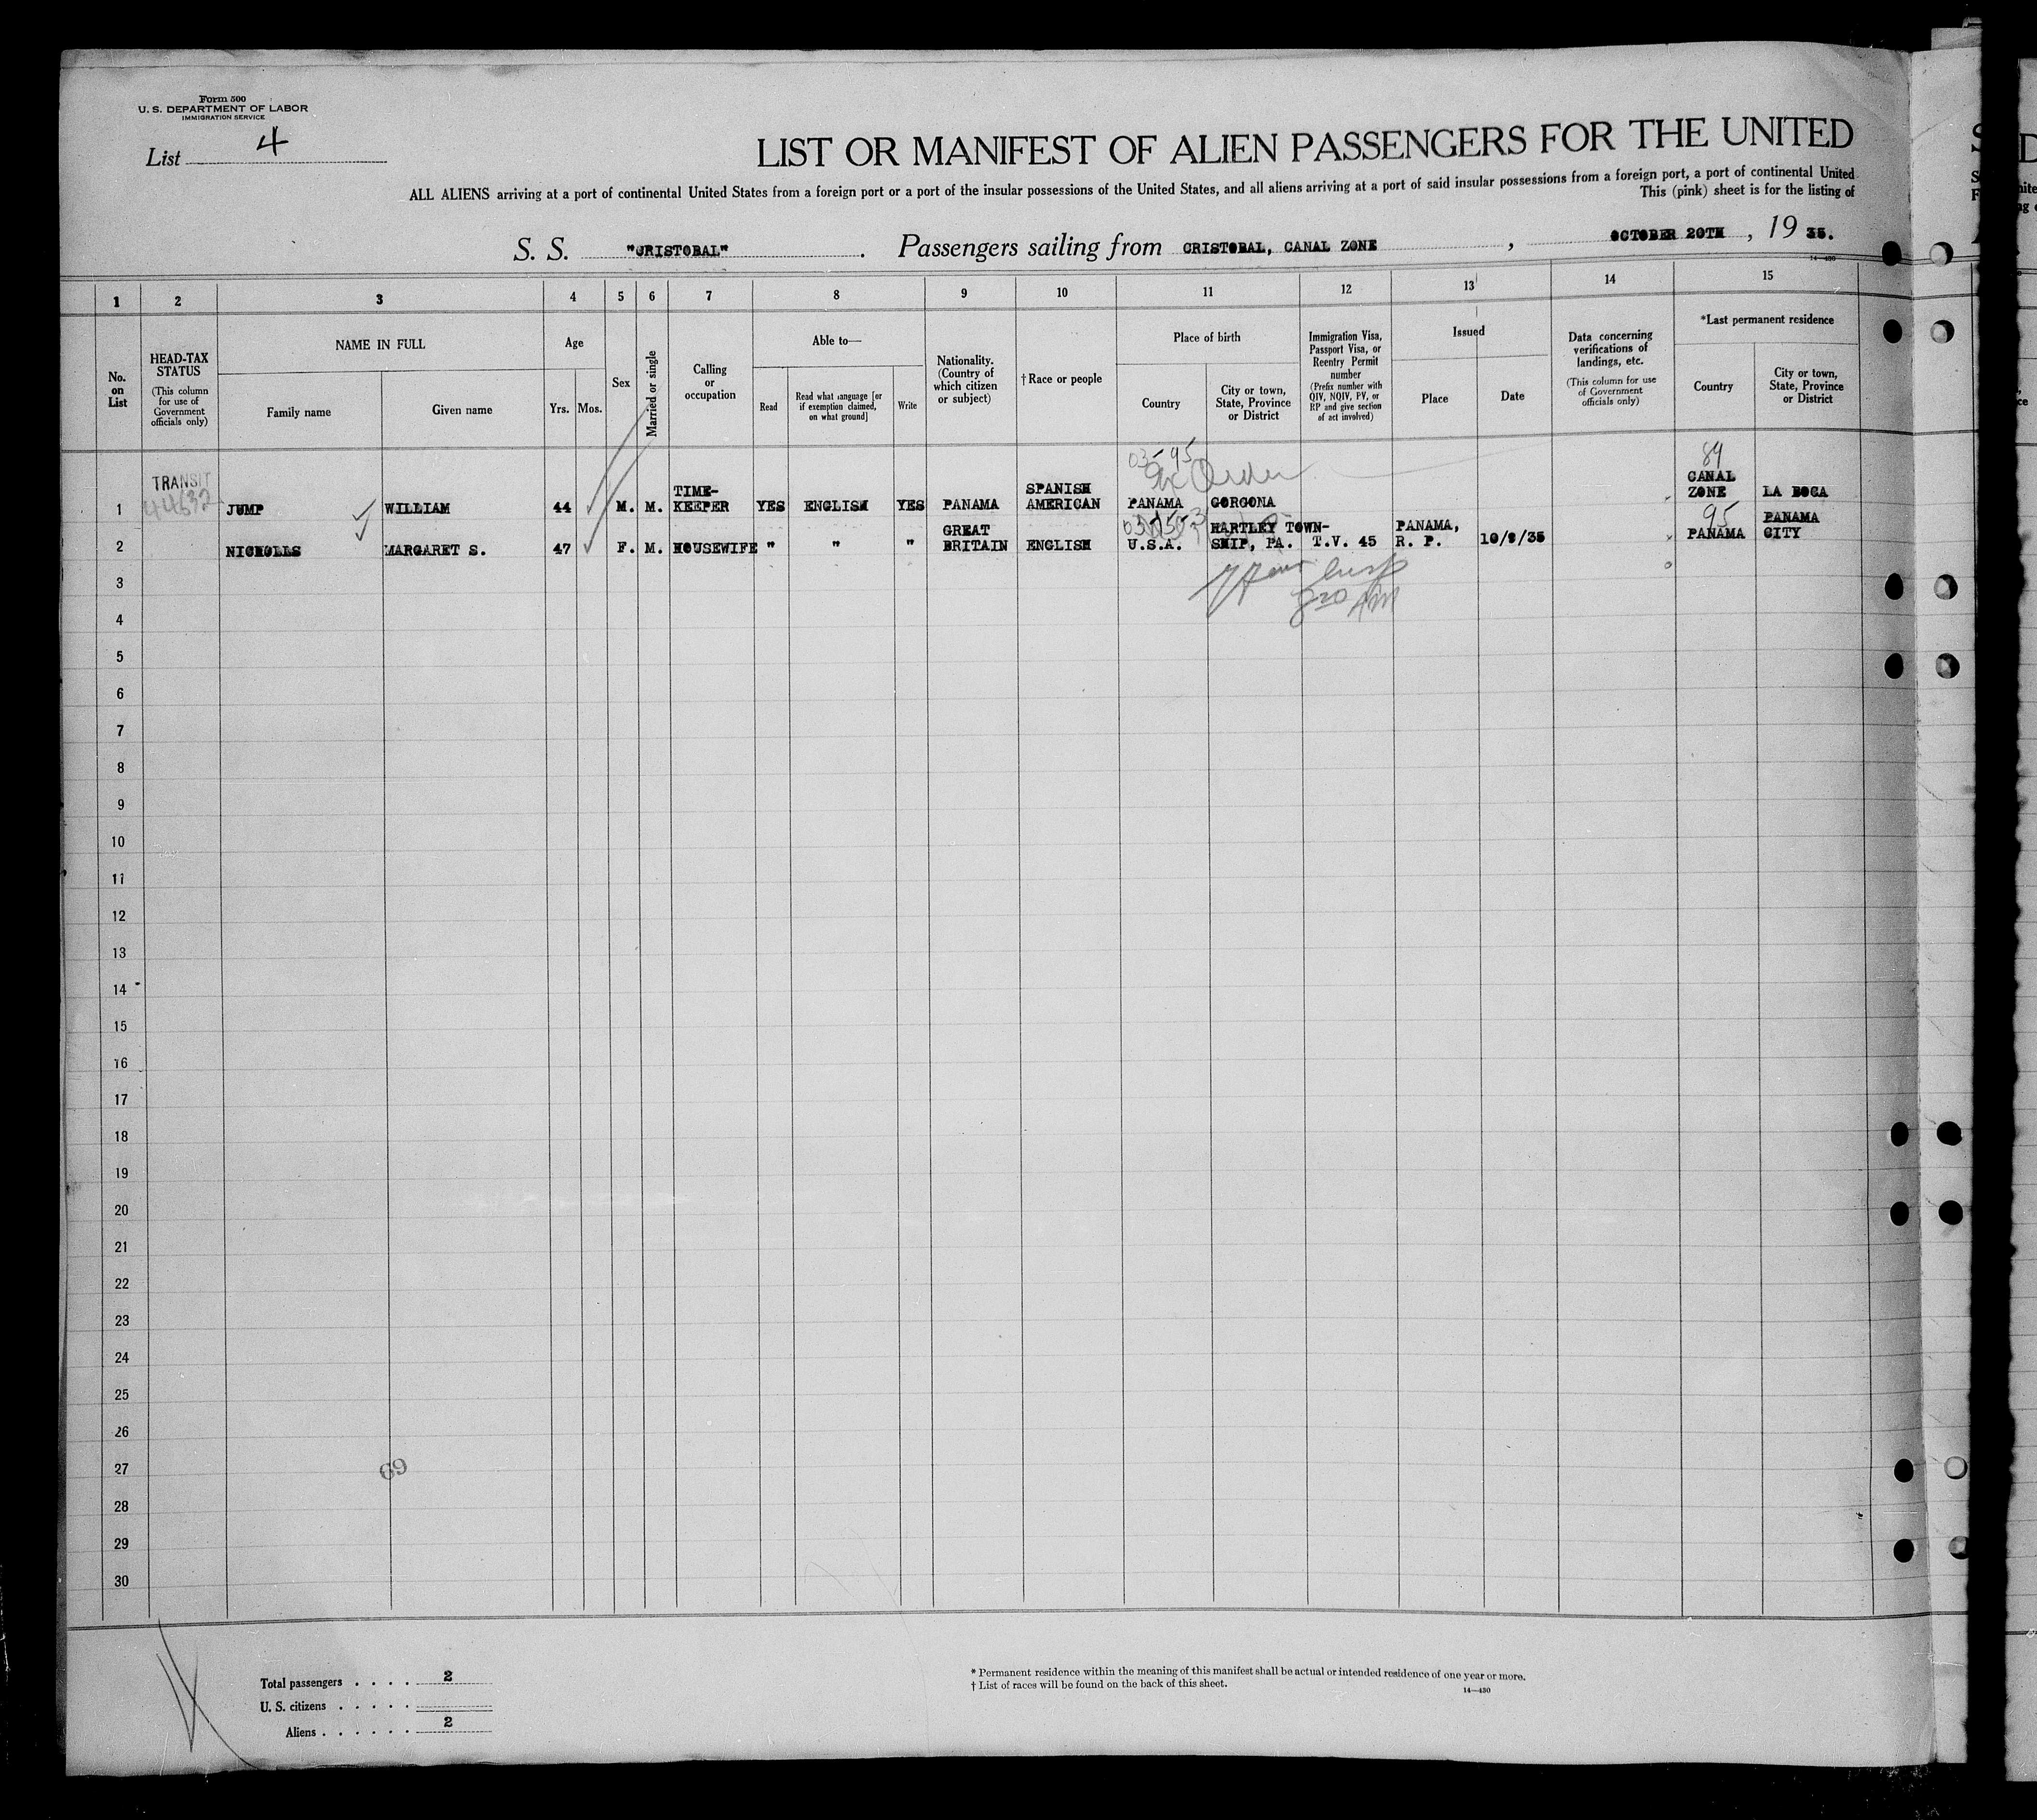 Form 500
U. S. DEPARTMENT OF LABOR
IMMIGRATION SERVICE
List 4
LIST OR MANIFEST OF ALIEN PASSENGERS FOR THE UNITED
ALL ALIENS arriving at a port of continental United States from a foreign port or a port of the insular possessions of the United States, and all aliens arriving at a port of said insular possessions from a foreign port, a port of continental United
This (pink) sheet is for the listing of
S. S. "CRISTOBAL". Passengers sailing from CRISTOBAL, CANAL ZONE, OCTOBER 20TH, 19 35.
14—430
1 2 3 4 5 6 7 8 9 10 11 12 13 14 15
No. on List
HEAD-TAX STATUS
(This column for use of Government officials only)
NAME IN FULL
Family name
Given name
Age
Yrs.
Mos.
Sex
Married or single
Calling or occupation
Able to—
Read
Read what language [or if exemption claimed, on what ground]
Write
Nationality. (Country of which citizen or subject)
†Race or people
Place of birth
Country
City or town, State, Province or District
Immigration Visa, Passport Visa, or Reentry Permit number
(Prefix number with QIV, NQIV, PV, or RP and give section of act involved)
Issued
Place
Date
Data concerning verifications of landings, etc.
(This column for use of Government officials only)
*Last permanent residence
Country
City or town, State, Province or District
03-95
89
TRANSIT
1 JUMP WILLIAM 44 M. M. TIME-KEEPER YES ENGLISH YES PANAMA SPANISH AMERICAN PANAMA GORGONA CANAL ZONE LA BOCA
95
2 NICHOLLS MARGARET S. 47 F. M. HOUSEWIFE " " " GREAT BRITAIN ENGLISH U.S.A. HARTLEY TOWN-SHIP, PA. T.V. 45 PANAMA, R. P. 10/8/35 PANAMA PANAMA CITY
3
AM
4
5
6
7
8
9
10
11
12
13
14
15
16
17
18
19
20
21
22
23
24
25
26
27
69
28
29
30
Total passengers . . . . 2
U. S. citizens . . . . .
Aliens . . . . . . 2
* Permanent residence within the meaning of this manifest shall be actual or intended residence of one year or more.
† List of races will be found on the back of this sheet.
14—430